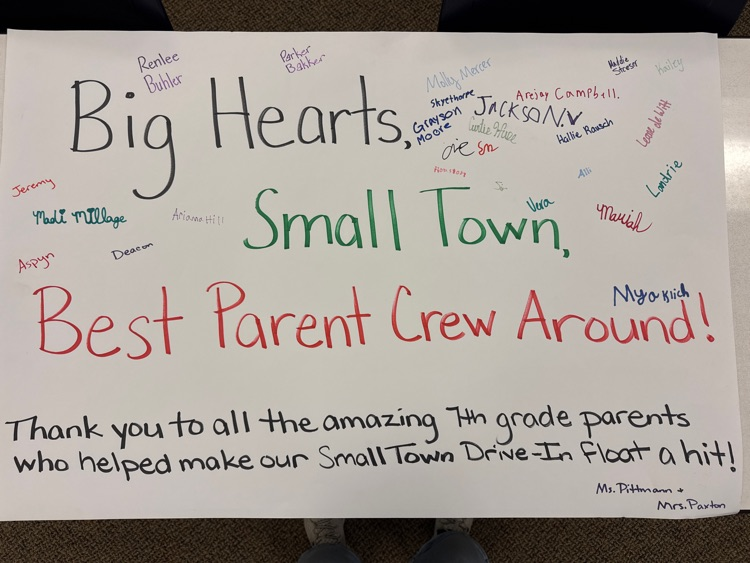 Renlee
Buhler
Parker
Bakker
Molly Mercer
Maddie
Kailey
Arejay Campbell.
Skyethorne
JACKSON.V
Grayson
Moore
Hallie Rausch
Big Hearts,
Jeremy
Alli
Landrie
Madi Millage
Arianna Hill
Vera
Mariah
Small Town,
Aspyn
Deacon
Best Parent Crew Around!
Thank you to all the amazing 7th grade parents
who helped make our Small Town Drive-In float a hit!
Ms. Pittmann +
Mrs. Paxton